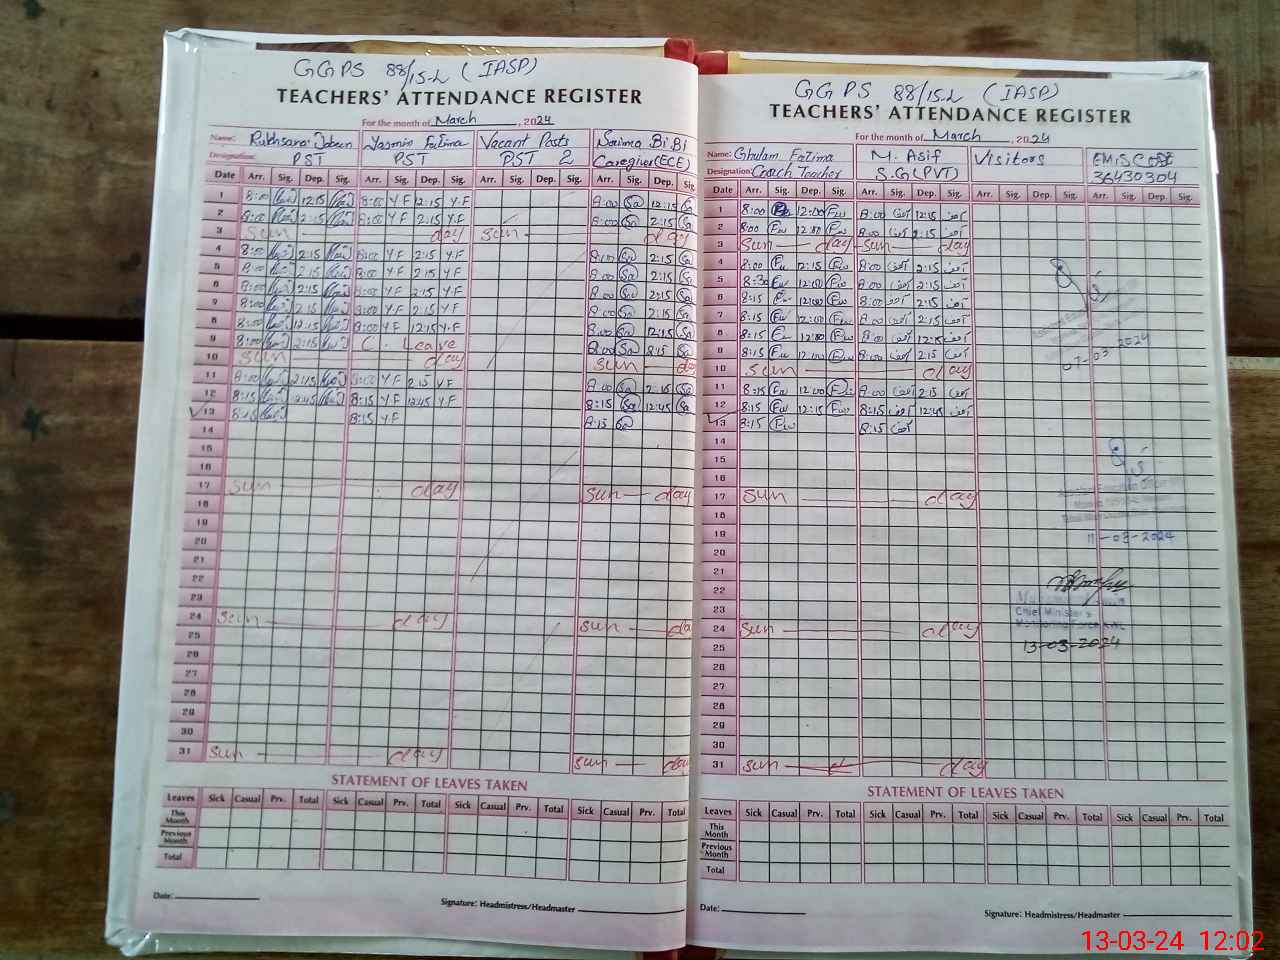 GGPS 88/15-L (IASP)
TEACHERS' ATTENDANCE REGISTER
For the month of March, 2024
Name: Rukhsana Jabeen Yasmin Fatima Vacant Posts Saima Bi Bi
Designation: PST PST PST 2 Caregiver(ECE)
Date Arr. Sig. Dep. Sig. Arr. Sig. Dep. Sig. Arr. Sig. Dep. Sig. Arr. Sig. Dep. Sig.
1 8:00 12:15 8:00 Y.F 12:15 Y.F 8:00 Sa 12:15 Sa
2 8:00 2:15 8:00 Y.F 2:15 Y.F 8:00 Sa 2:15 Sa
3 Sun day Sun day
4 8:00 2:15 8:00 Y.F 2:15 Y.F 8:00 Sa 2:15 Sa
5 8:00 2:15 8:00 Y.F 2:15 Y.F 8:00 Sa 2:15 Sa
6 8:00 2:15 8:00 Y.F 2:15 Y.F 8:00 Sa 2:15 Sa
7 8:00 2:15 8:00 Y.F 2:15 Y.F 8:00 Sa 2:15 Sa
8 8:00 12:15 8:00 Y.F 12:15 Y.F 8:00 Sa 12:15 Sa
9 8:00 2:15 C. Leave 8:00 Sa Sa
10 Sun day Sun
11 8:00 2:15 8:00 Y.F 2:15 Y.F 8:00 Sa 2:15 Sa
12 8:15 12:45 8:15 Y.F 12:45 Y.F 8:15 Sa 12:45 Sa
13 8:15 8:15 Y.F 8:15 Sa
14
15
16
17 Sun day Sun day
18
19
20
21
22
23
24 Sun day Sun da
25
26
27
28
29
30
31 Sun day Sun day
STATEMENT OF LEAVES TAKEN
Leaves Sick Casual Prv. Total Sick Casual Prv. Total Sick Casual Prv. Total Sick Casual Prv. Total
This Month
Previous Month
Total
Date:
Signature: Headmistress/Headmaster
GGPS 88/15-L (IASP)
TEACHERS' ATTENDANCE REGISTER
For the month of March, 2024
Name: Ghulam Fatima M. Asif Visitors EMIS CODE
Designation: Coach Teacher S.G(PVT) 36430304
Date Arr. Sig. Dep. Sig. Arr. Sig. Dep. Sig. Arr. Sig. Dep. Sig. Arr. Sig. Dep. Sig.
1 8:00 12:00 8:00 آصف 12:15 آصف
2 8:00 12:00 8:00 آصف 2:15 آصف
3 Sun day Sun day
4 8:00 12:15 8:00 آصف 2:15 آصف
5 8:30 12:00 8:00 آصف 2:15 آصف
6 8:15 12:00 8:00 آصف 2:15 آصف
7 8:15 12:00 8:00 آصف 2:15 آصف
8 8:15 12:00 8:00 آصف 12:15 آصف
9 8:15 12:00 8:00 آصف 2:15 آصف
07-03 2024
10 Sun day
11 8:15 12:00 8:00 آصف 2:15 آصف
12 8:15 12:15 8:15 آصف 12:45 آصف
13 8:15 8:15 آصف
14
15
16
17 Sun day
18
19
11-03-2024
20
21
22
23
Chief Minister's
24 Sun day
25
13-03-2024
26
27
28
29
30
31 Sun day
STATEMENT OF LEAVES TAKEN
Leaves Sick Casual Prv. Total Sick Casual Prv. Total Sick Casual Prv. Total Sick Casual Prv. Total
This Month
Previous Month
Total
Date:
Signature: Headmistress/Headmaster
13-03-24 12:02